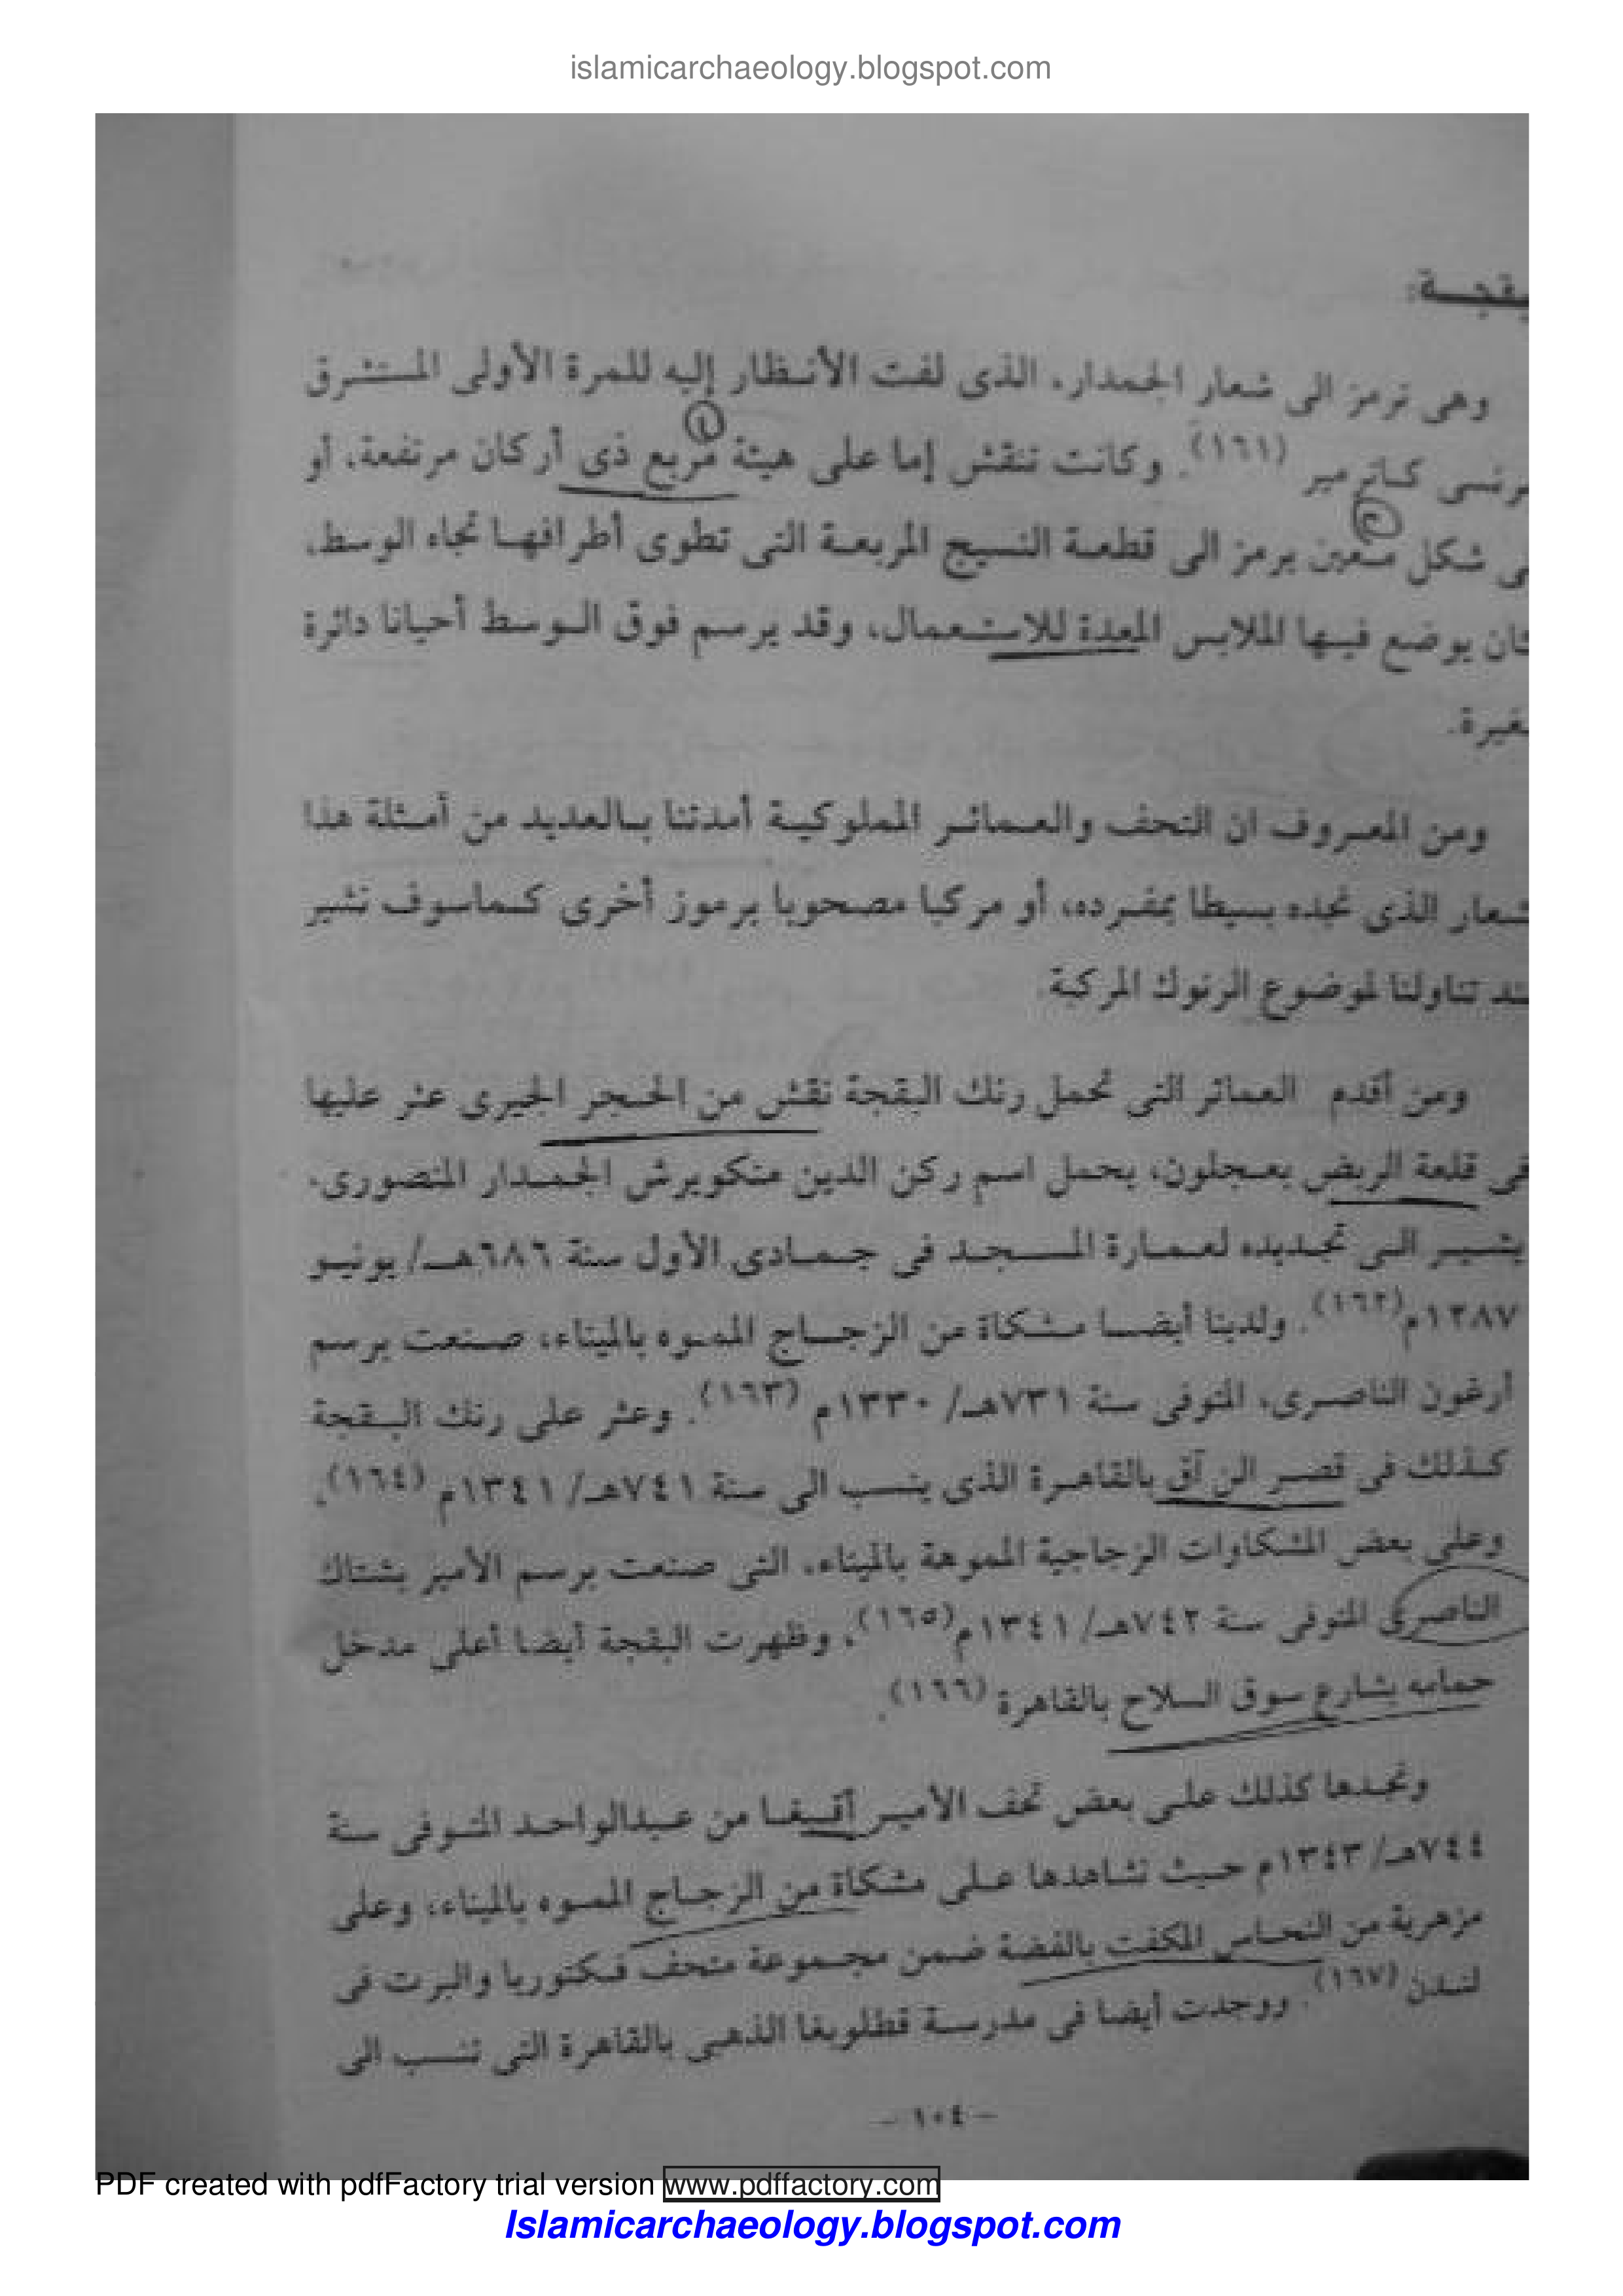 islamicarchaeology.blogspot.com
بقجـــة:
وهى ترمز الى شعار الجمدار، الذى لفت الأنـظار إليه للمرة الأولى المستشرق
رنسى كـاترمير (١٦١). وكانت تنقش إما على هيئة مربع ذى أركان مرتفعة، أو
ى شكل معين يرمز الى قطعـة النسيج المربعـة التى تطوى أطرافهـا تجاه الوسط،
كان يوضع فيـها الملابس المعدة للاستـعمال، وقد يرسم فوق الـوسط أحيانا دائرة
غيرة.
ومن المعـروف ان التحف والعـمائـر المملوكيـة أمدتنا بـالعديد من أمـثلة هذا
شعار الذى نجده بسيطا بمفـرده، أو مركبا مصحوبا برموز أخرى كـماسوف نشير
ند تناولنا لموضوع الرنوك المركبة.
ومن أقدم العمائر التى تحمل رنك البـقجة نقـش من الحـجر الجيرى عثر عليها
فى قلعة الربض بعـجلون، يحمل اسم ركن الدين منكوبرش الجـمـدار المنصورى،
يشـيـر الـى تجـديده لعـمـارة المـسـجـد فى جـمـادى الأول سنة ٦٨٦هـ/ يونيـو
١٢٨٧م(١٦٢). ولدينا أيضـا مشكاة من الزجـاج الممـوه بالميناء، صـنعت برسم
أرغون الناصـرى، المتوفى سنة ٧٣١هـ/ ١٣٣٠م (١٦٣). وعثر على رنك البـقجة
كـذلك فى قصـر الن آق بالقاهـرة الذى ينسـب الى سنة ٧٤١هـ/ ١٣٤١م (١٦٤).
وعلى بعض المشكاوات الزجاجية المموهة بالميناء، التى صنعت برسم الأمير بشتاك
الناصرى المتوفى سنة ٧٤٢هـ/ ١٣٤١م(١٦٥)، وظهرت البقجة أيضا أعلى مدخل
حمامه بشارع سوق السلاح بالقاهرة (١٦٦).
ونجـدها كذلك علـى بعض تحف الأميـر آقـبـغـا من عـبدالواحـد المتـوفى سنة
٧٤٤هـ/ ١٣٤٣م حيث نشاهدها عـلـى مشكاة من الزجـاج الممـوه بالميناء، وعلى
مزهرية من النحـاس المكفت بالفضة ضـمن مجـموعة متحف فـكتوريا والبرت فى
لنـدن (١٦٧). ووجدت أيضـا فى مدرسـة قطلوبغا الذهبى بالقاهرة التى تنسب الى
– ١٠٤ –
PDF created with pdfFactory trial version www.pdffactory.com
Islamicarchaeology.blogspot.com